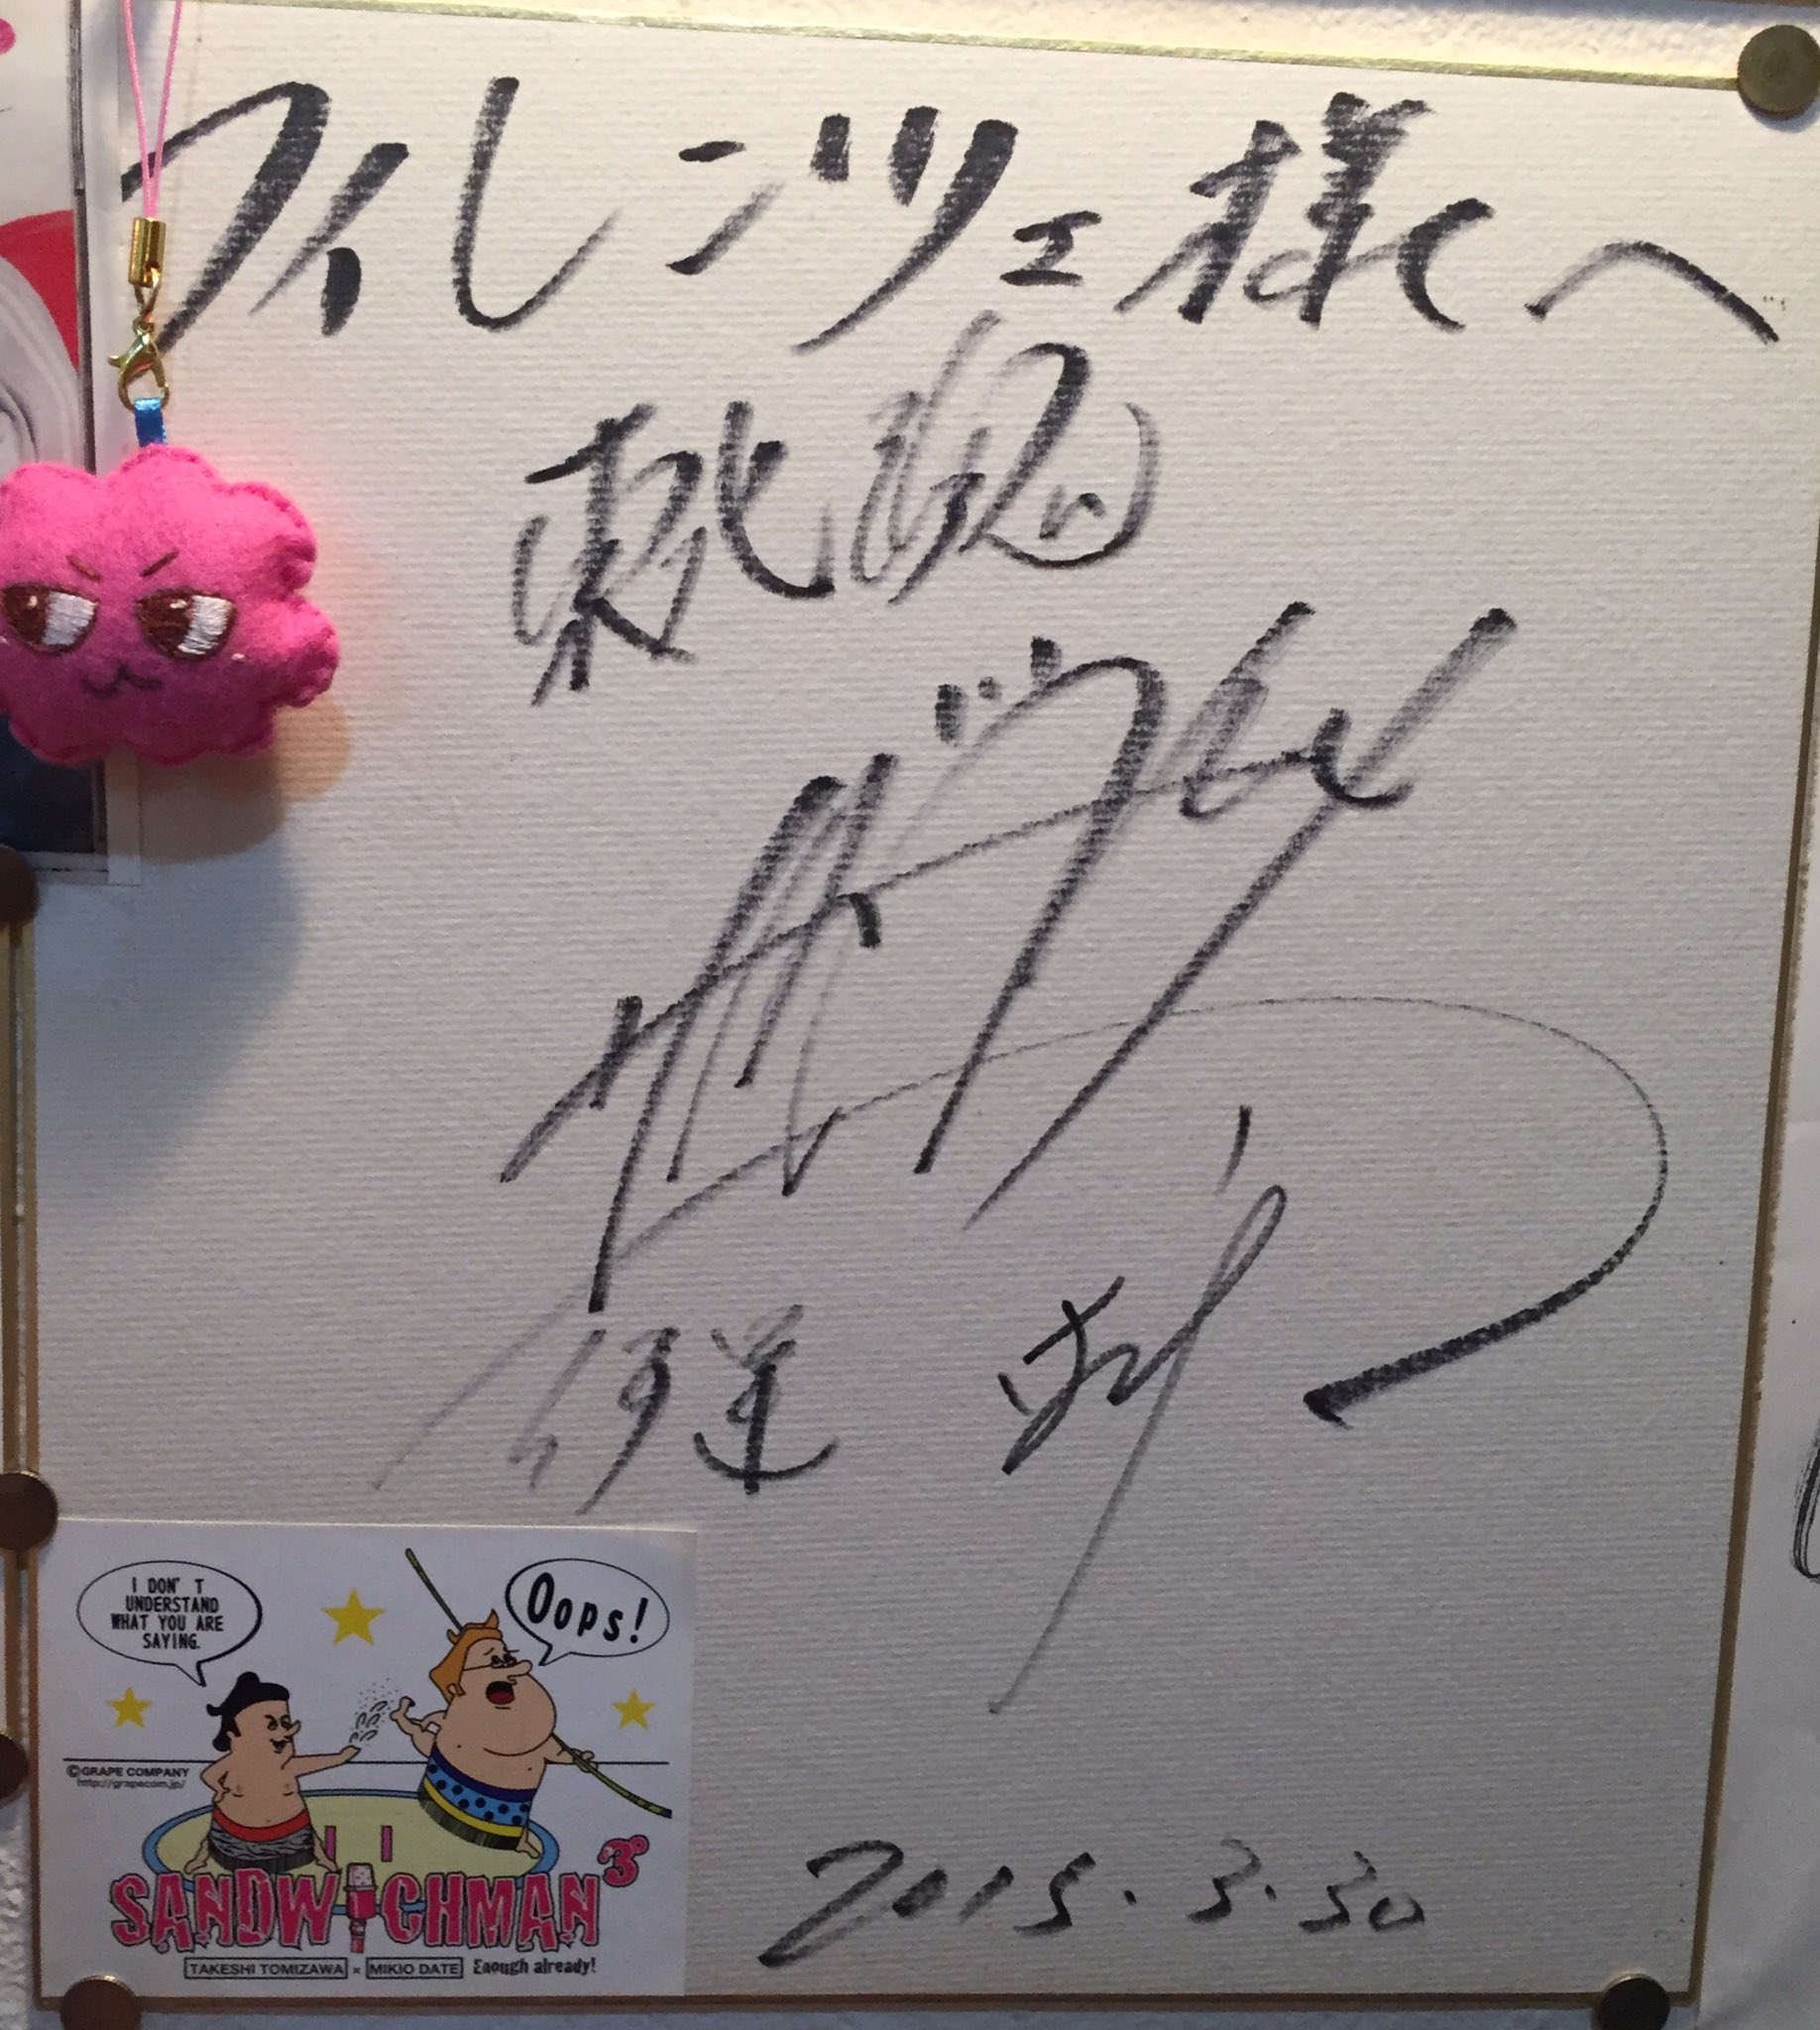 フィレンツェ様へ
東北魂
伊達
2015.3.30
I DON'T
UNDERSTAND
WHAT YOU ARE
SAYING.
Oops!
©GRAPE COMPANY
http://grapecom.jp/
SANDWICHMAN 3°
TAKESHI TOMIZAWA × MIKIO DATE Enough already!